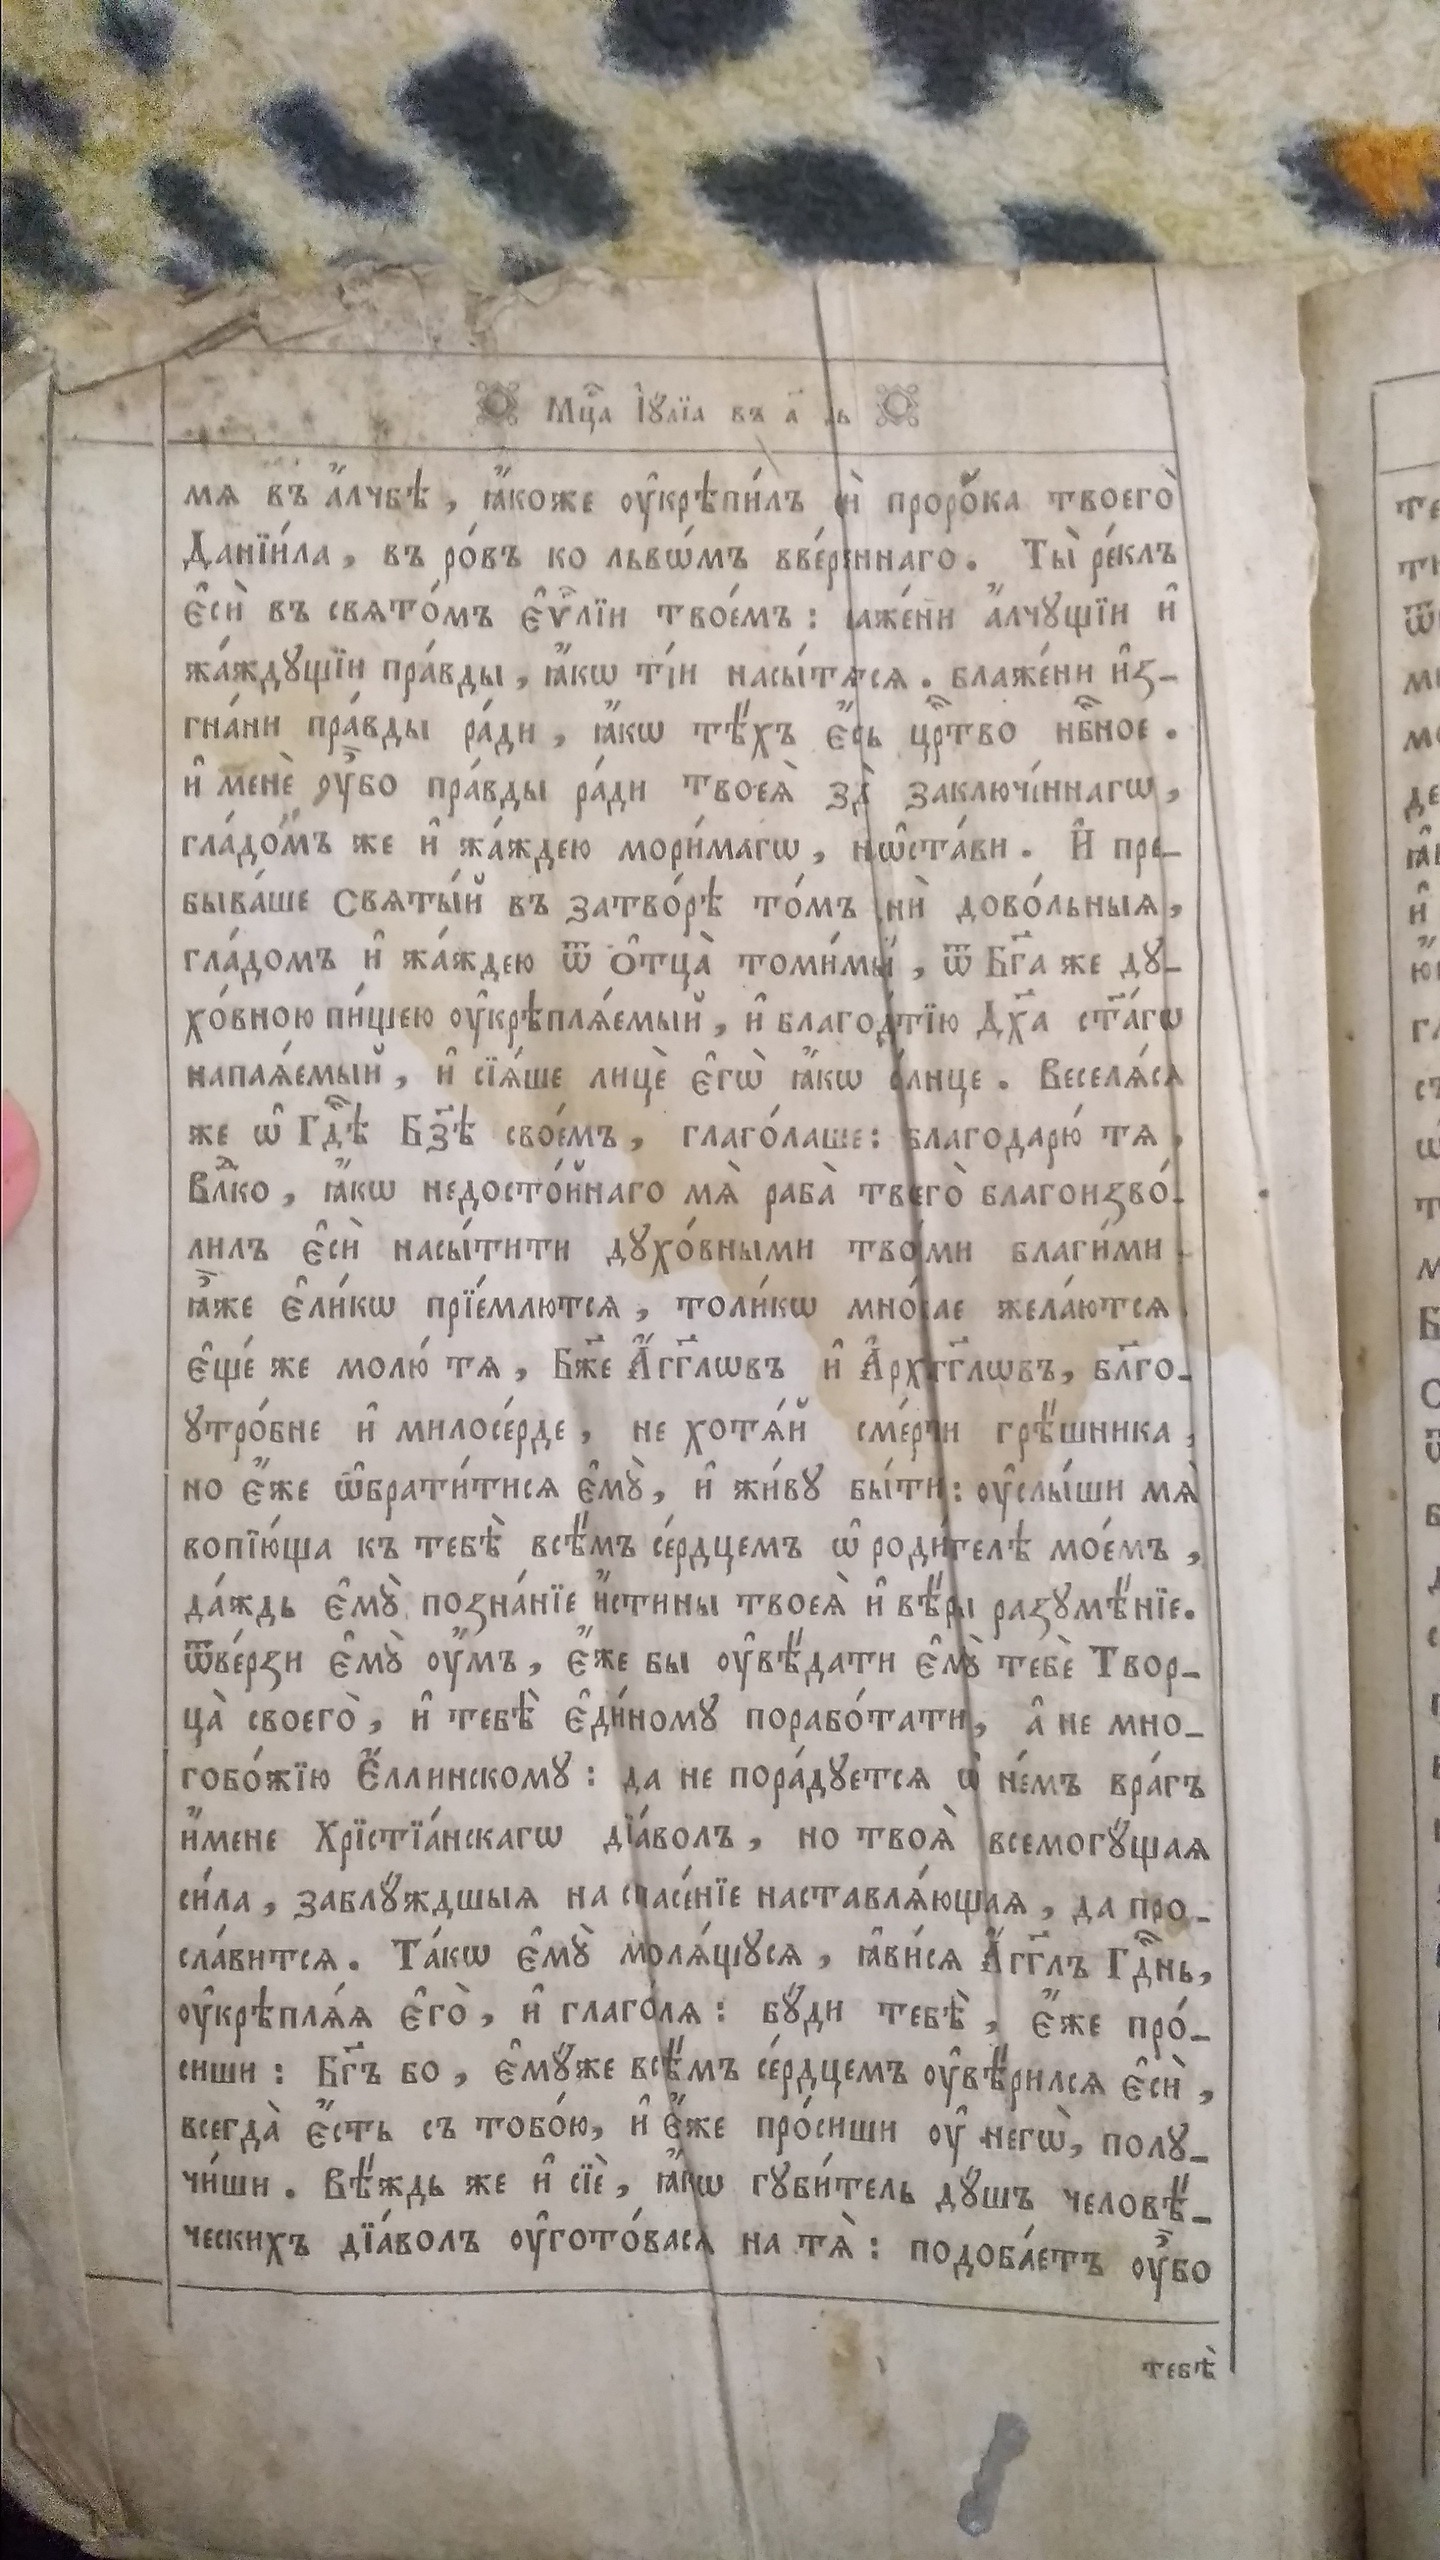 Мц҇а Іꙋ́лїа въ а҃ дь
мѧ въ а҆́лчбѣ, ꙗ҆́коже ᲂу҆крѣпи́лъ и҆̀ проро́ка твоего̀
Данїи́ла, въ ро́въ ко львѡ́мъ вве́рженнаго. Ты̀ ре́клъ
є҆сѝ въ свято́мъ є҆ѵ҃лїи твое́мъ: блаже́ни а҆́лчꙋщїи и҆
жа́ждꙋщїи пра́вды, ꙗ҆́кѡ ті́и насы́тятся. блаже́ни и҆з-
гна́ни пра́вды ра́ди, ꙗ҆́кѡ тѣ́хъ є҆́сть црⷭ҇тво нбⷭ҇ное.
и҆ менѐ ᲂу҆̀бо пра́вды ра́ди твоеѧ̀ здѣ̀ заключе́ннагѡ,
гла́домъ же и҆ жа́ждею мори́магѡ, не ѡ҆ста́ви. И҆ пре-
быва́ше Святы́й въ затво́рѣ то́мъ дни̑ дово́льныѧ,
гла́домъ и҆ жа́ждею ѿ ѻ҆тца̀ томи́мый, ѿ Бг҃а же дꙋ-
хо́вною пи́щею ᲂу҆крѣплѧ́емый, и҆ благода́тїю Дх҃а ст҃а́гѡ
напаѧ́емый, и҆ сїѧ́ше лицѐ є҆гѡ̀ ꙗ҆́кѡ со́лнце. Веселѧ́сѧ
же ѡ҆ Гдⷭ҇ѣ Бз҃ѣ свое́мъ, глаго́лаше: благодарю́ тѧ,
Влⷣко, ꙗ҆́кѡ недосто́йнаго мѧ̀ раба̀ твоего̀ благоизво́-
лилъ є҆сѝ насы́тити дꙋхо́вными твои́ми благи́ми
ꙗ҆̀же є҆ли́кѡ прїе́млютсѧ, толи́кѡ мно́жае жела́ютсѧ
є҆ще́ же молю́ тѧ, Бж҃е А҆́гг҃лѡвъ и҆ А҆рха́гг҃лѡвъ, бл҃го-
ꙋтро́бне и҆ милосе́рде, не хотѧ́й сме́рти грѣ́шника,
но є҆́же ѡ҆брати́тисѧ є҆мꙋ̀, и҆ жи́вꙋ бы́ти: ᲂу҆слы́ши мѧ̀
вопїю́ща къ тебѣ̀ всѣ́мъ се́рдцемъ ѡ҆ роди́телѣ мое́мъ,
да́ждь є҆мꙋ̀ позна́нїе и҆́стины твоеѧ̀ и҆ вѣ́ры разꙋмѣ́нїе.
ѿве́рзи є҆мꙋ̀ ᲂу҆́мъ, є҆́же бы ᲂу҆вѣ́дати є҆мꙋ̀ тебѐ Твор-
ца̀ своего̀, и҆ тебѣ̀ є҆ди́номꙋ порабо́тати, а҆ не мно-
гобо́жїю Є҆́ллинскомꙋ: да не пора́дꙋетсѧ ѡ҆ не́мъ вра́гъ
и҆́мене Хрїстїа́нскагѡ дїа́волъ, но твоѧ̀ всемогꙋ́щаѧ
си́ла, заблꙋ́ждшыѧ на спасе́нїе наставлѧ́ющаѧ, да про-
сла́витсѧ. Та́кѡ є҆мꙋ̀ молѧ́щꙋсѧ, ꙗ҆ви́сѧ А҆́гг҃лъ Гдⷭ҇нь,
ᲂу҆крѣплѧ́ѧ є҆го̀, и҆ глаго́лѧ: бꙋ́ди тебѣ̀, є҆́же про́-
сиши: Бг҃ъ бо, є҆мꙋ́же всѣ́мъ се́рдцемъ ᲂу҆вѣ́рилсѧ є҆сѝ,
всегда̀ є҆́сть съ тобо́ю, и҆ є҆́же про́сиши ᲂу҆ негѡ̀, полꙋ-
чи́ши. Вѣ́ждь же и҆ сїѐ, ꙗ҆́кѡ гꙋби́тель дꙋ́шъ человѣ́-
ческихъ дїа́волъ ᲂу҆гото́васѧ на тѧ̀: подоба́етъ ᲂу҆̀бо
тебѣ̀